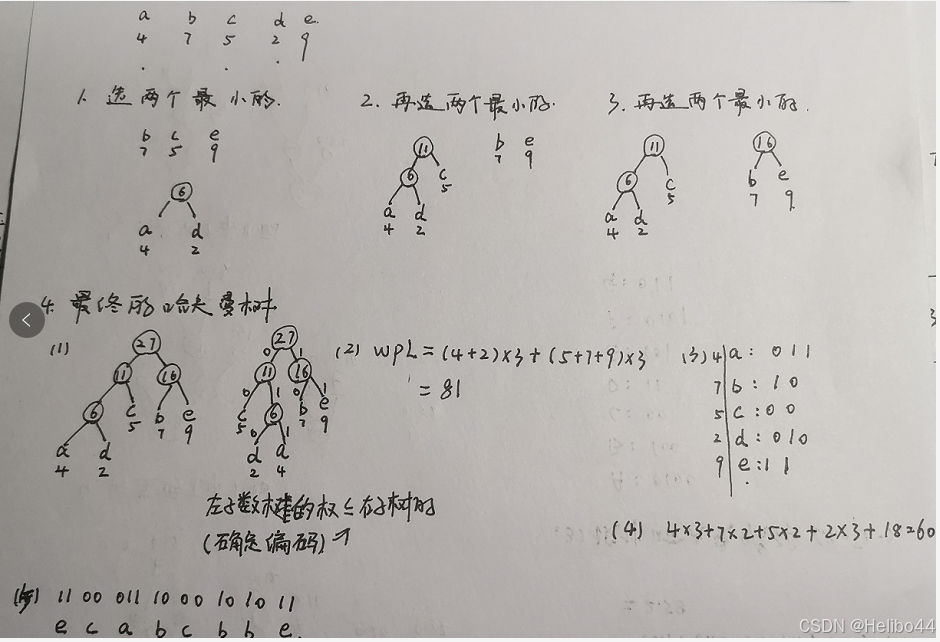 a b c d e
4 7 5 2 9
1. 选两个最小的.
b c e
7 5 9
6
a d
4 2
2. 再选两个最小的.
11 b e
7 9
6 c
5
a d
4 2
3. 再选两个最小的.
11 16
6 c b e
5 7 9
a d
4 2
4. 最终的哈夫曼树
(1)
27
11 16
6 c b e
5 7 9
a d
4 2
27
0 1
11 16
0 1 0 1
c 6 b e
5 7 9
0 1
d a
2 4
左子数树的权≤右子树的
(确定编码)
(2) WPL = (4+2)×3 + (5+7+9)×3
= 81
(3) 4 a: 011
7 b: 10
5 c: 00
2 d: 010
9 e: 11
(4) 4×3+7×2+5×2+2×3+18=60
11 00 011 10 00 10 10 11
e c a b c b b e
CSDN @Helibo44